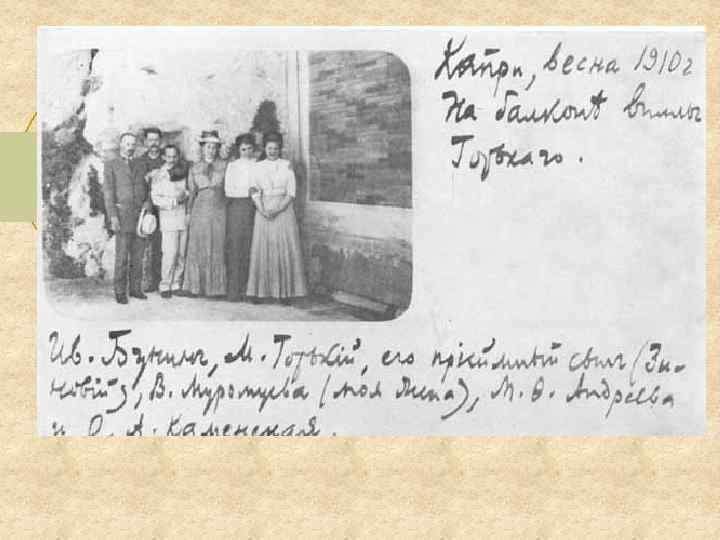 Капри, весна 1910 г
На балконѣ виллы
Горькаго.
Ив. Бунинъ, М. Горькiй, его прiёмный сынъ (Зи-
новiй), В. Муромцева (моя жена), М. Ѳ. Андреева
и О. А. Каменская.